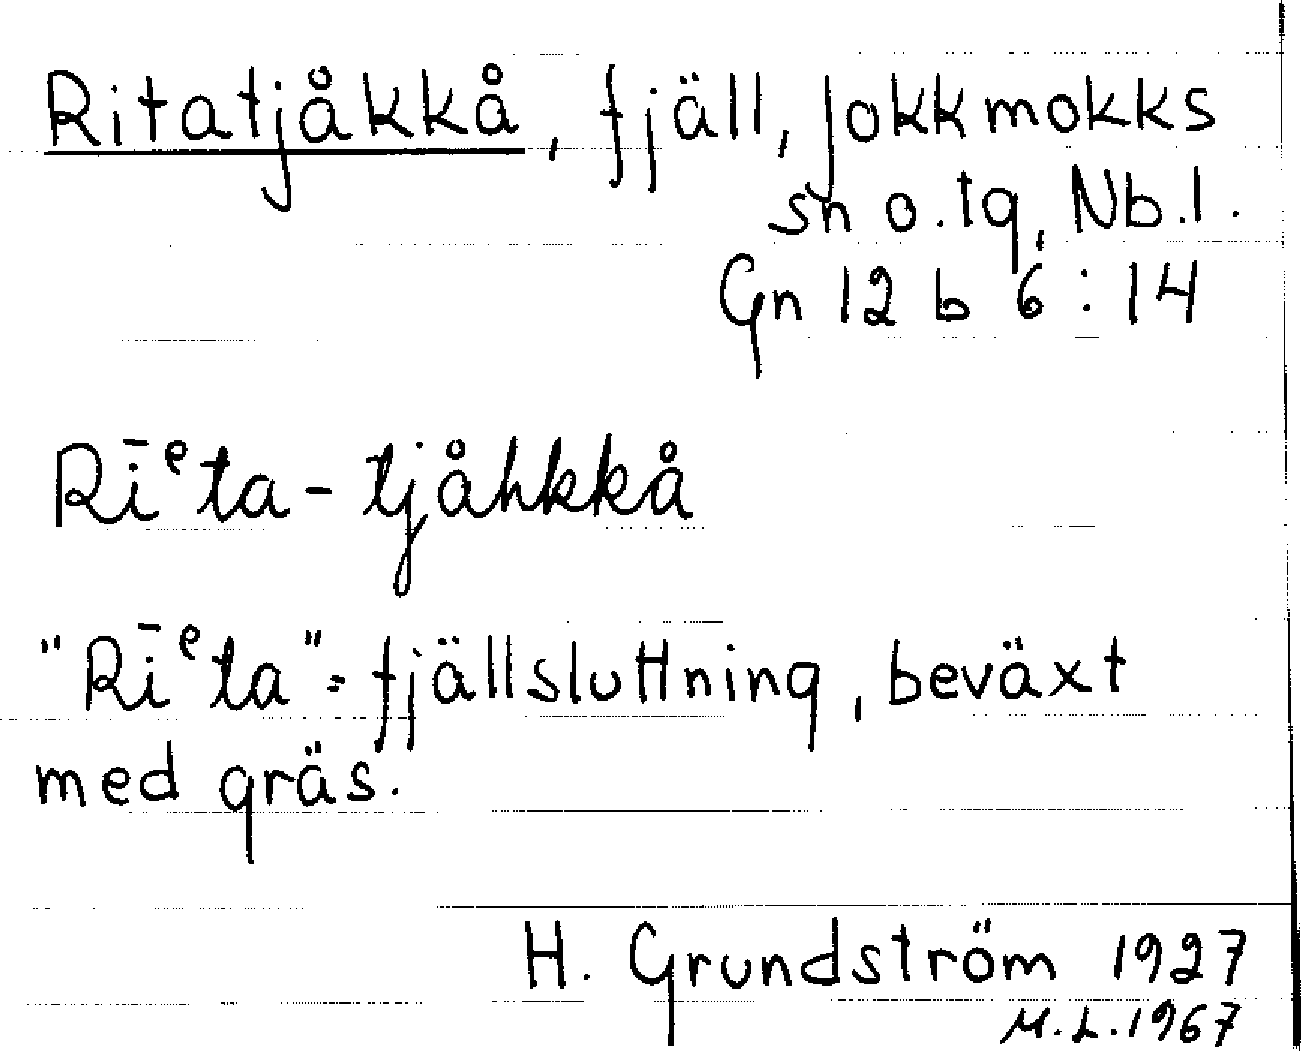 Ritatjåkkå, fjäll, Jokkmokks
sn o. tg, Nb.l.
Gn 12 b 6:14
Rīᵉta-tjåhkkå
"Rīᵉta" = fjällsluttning, beväxt
med gräs.
H. Grundström 1927
M.L. 1967